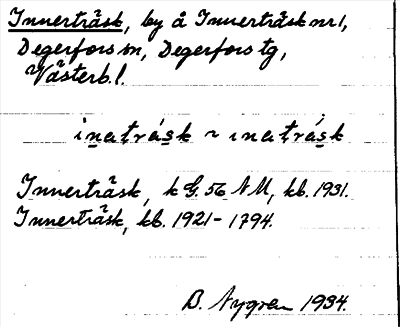 Innerträsk, by å Innerträsk nr 1,
Degerfors sn, Degerfors tg,
Västerb. l.
inatråsk ~ inatråsk
Innerträsk, k G. 56 NM, kb. 1931.
Innerträsk, kb. 1921 - 1794.
B. Nygren 1934.